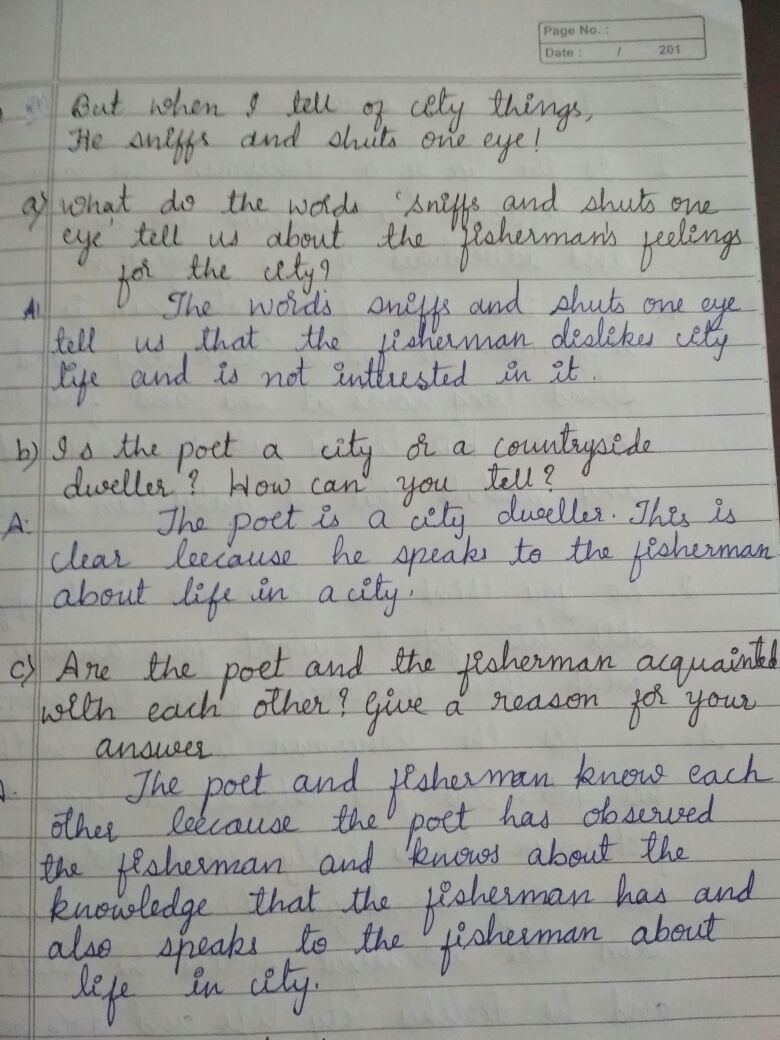 Page No. :
Date : / 201
But when I tell of city things,
He sniffs and shuts one eye!
a) What do the words 'sniffs and shuts one
eye' tell us about the fisherman's feelings
for the city?
A: The words sniffs and shuts one eye
tell us that the fisherman dislikes city
life and is not interested in it.
b) Is the poet a city or a countryside
dweller? How can you tell?
A: The poet is a city dweller. This is
clear because he speaks to the fisherman
about life in a city.
c) Are the poet and the fisherman acquainted
with each other? Give a reason for your
answer
The poet and fisherman know each
other because the poet has observed
the fisherman and knows about the
knowledge that the fisherman has and
also speaks to the fisherman about
life in city.